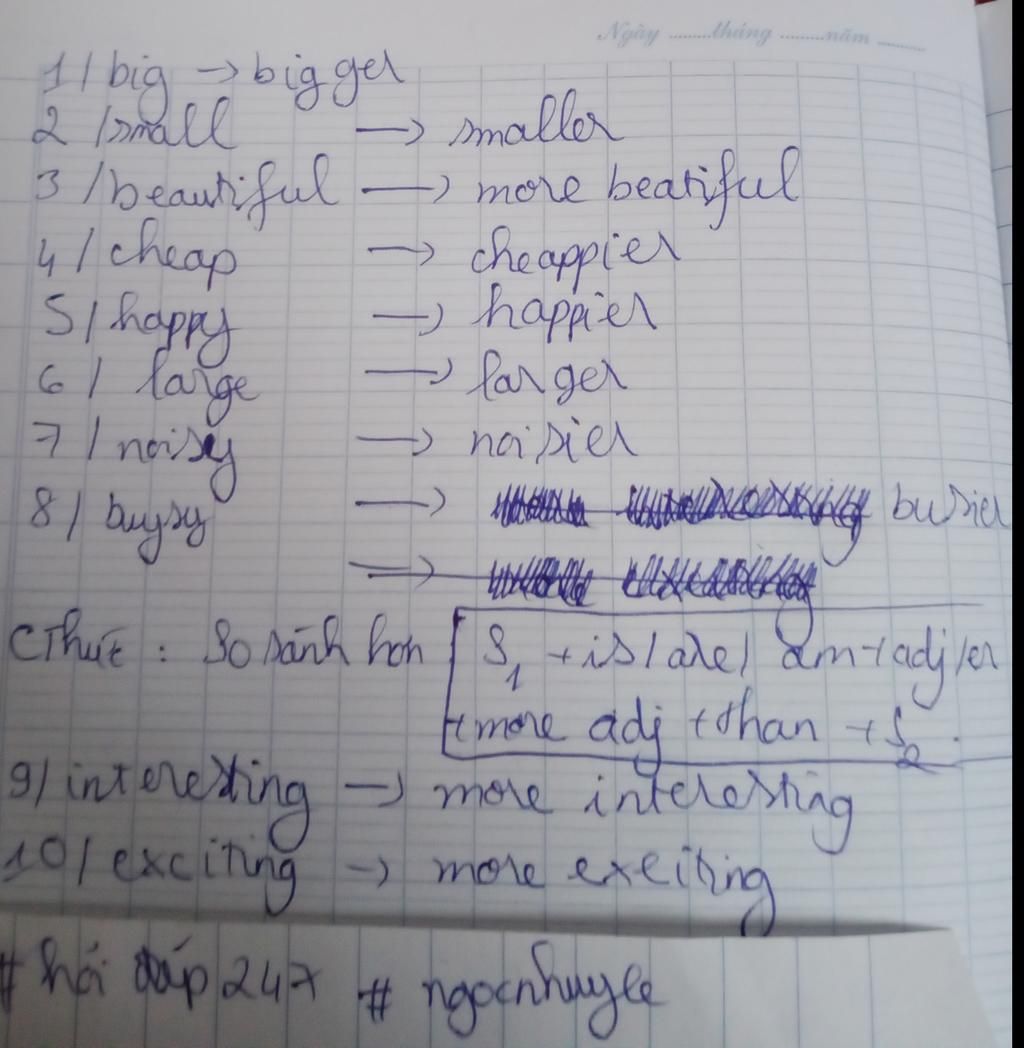 Ngày ........tháng ........năm ........
1/ big → bigger
2/ small → smaller
3/ beautiful → more beatiful
4/ cheap → cheappier
5/ happy → happier
6/ large → larger
7/ noisy → noisier
8/ buysy → busier
→
CThức : So sánh hơn S1 + is/are/ am + adj/er
+ more adj + than + S2.
9/ interesting → more interesting
10/ exciting → more exciting
# hỏi đáp 247 # ngocnhuylee